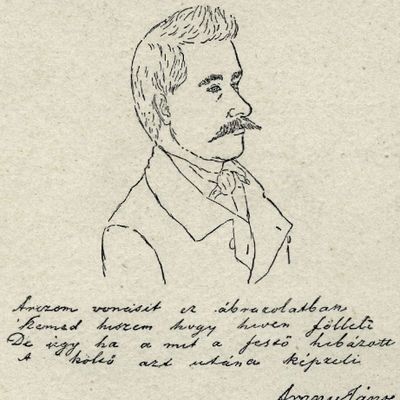 Arczom vonásit ez ábrazolatban
Szemed hiszem hogy hiven fölleli
De ugy ha a mit a festő hibázott
A költő azt utána képzeli
Arany János